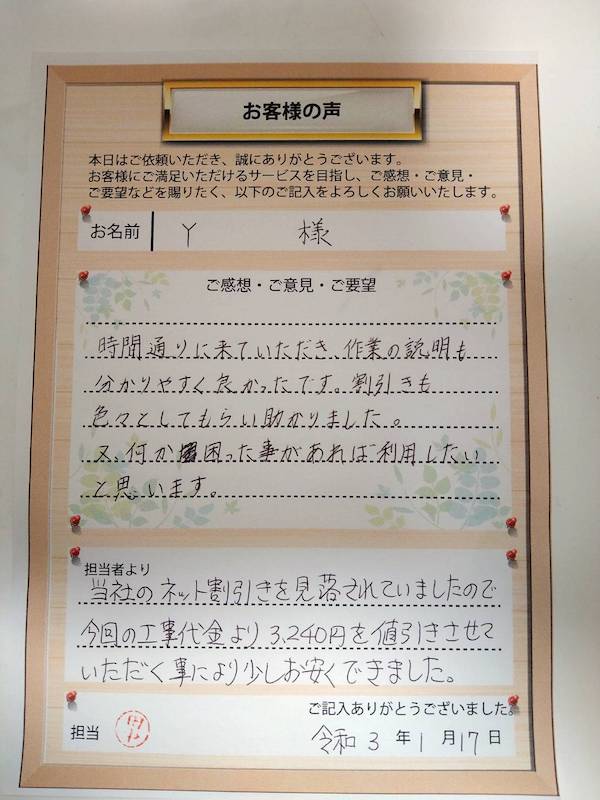 お客様の声
本日はご依頼いただき、誠にありがとうございます。
お客様にご満足いただけるサービスを目指し、ご感想・ご意見・
ご要望などを賜りたく、以下のご記入をよろしくお願いいたします。
お名前 Y 様
ご感想・ご意見・ご要望
時間通りに来ていただき、作業の説明も
分かりやすく良かったです。割引きも
色々としてもらい助かりました。
又、何か困った事があれば利用したい
と思います。
担当者より
当社のネット割引きを見落されていましたので
今回の工事代金より3,240円を値引きさせて
いただく事により少しお安くできました。
ご記入ありがとうございました。
担当
令和 3 年 1 月 17 日